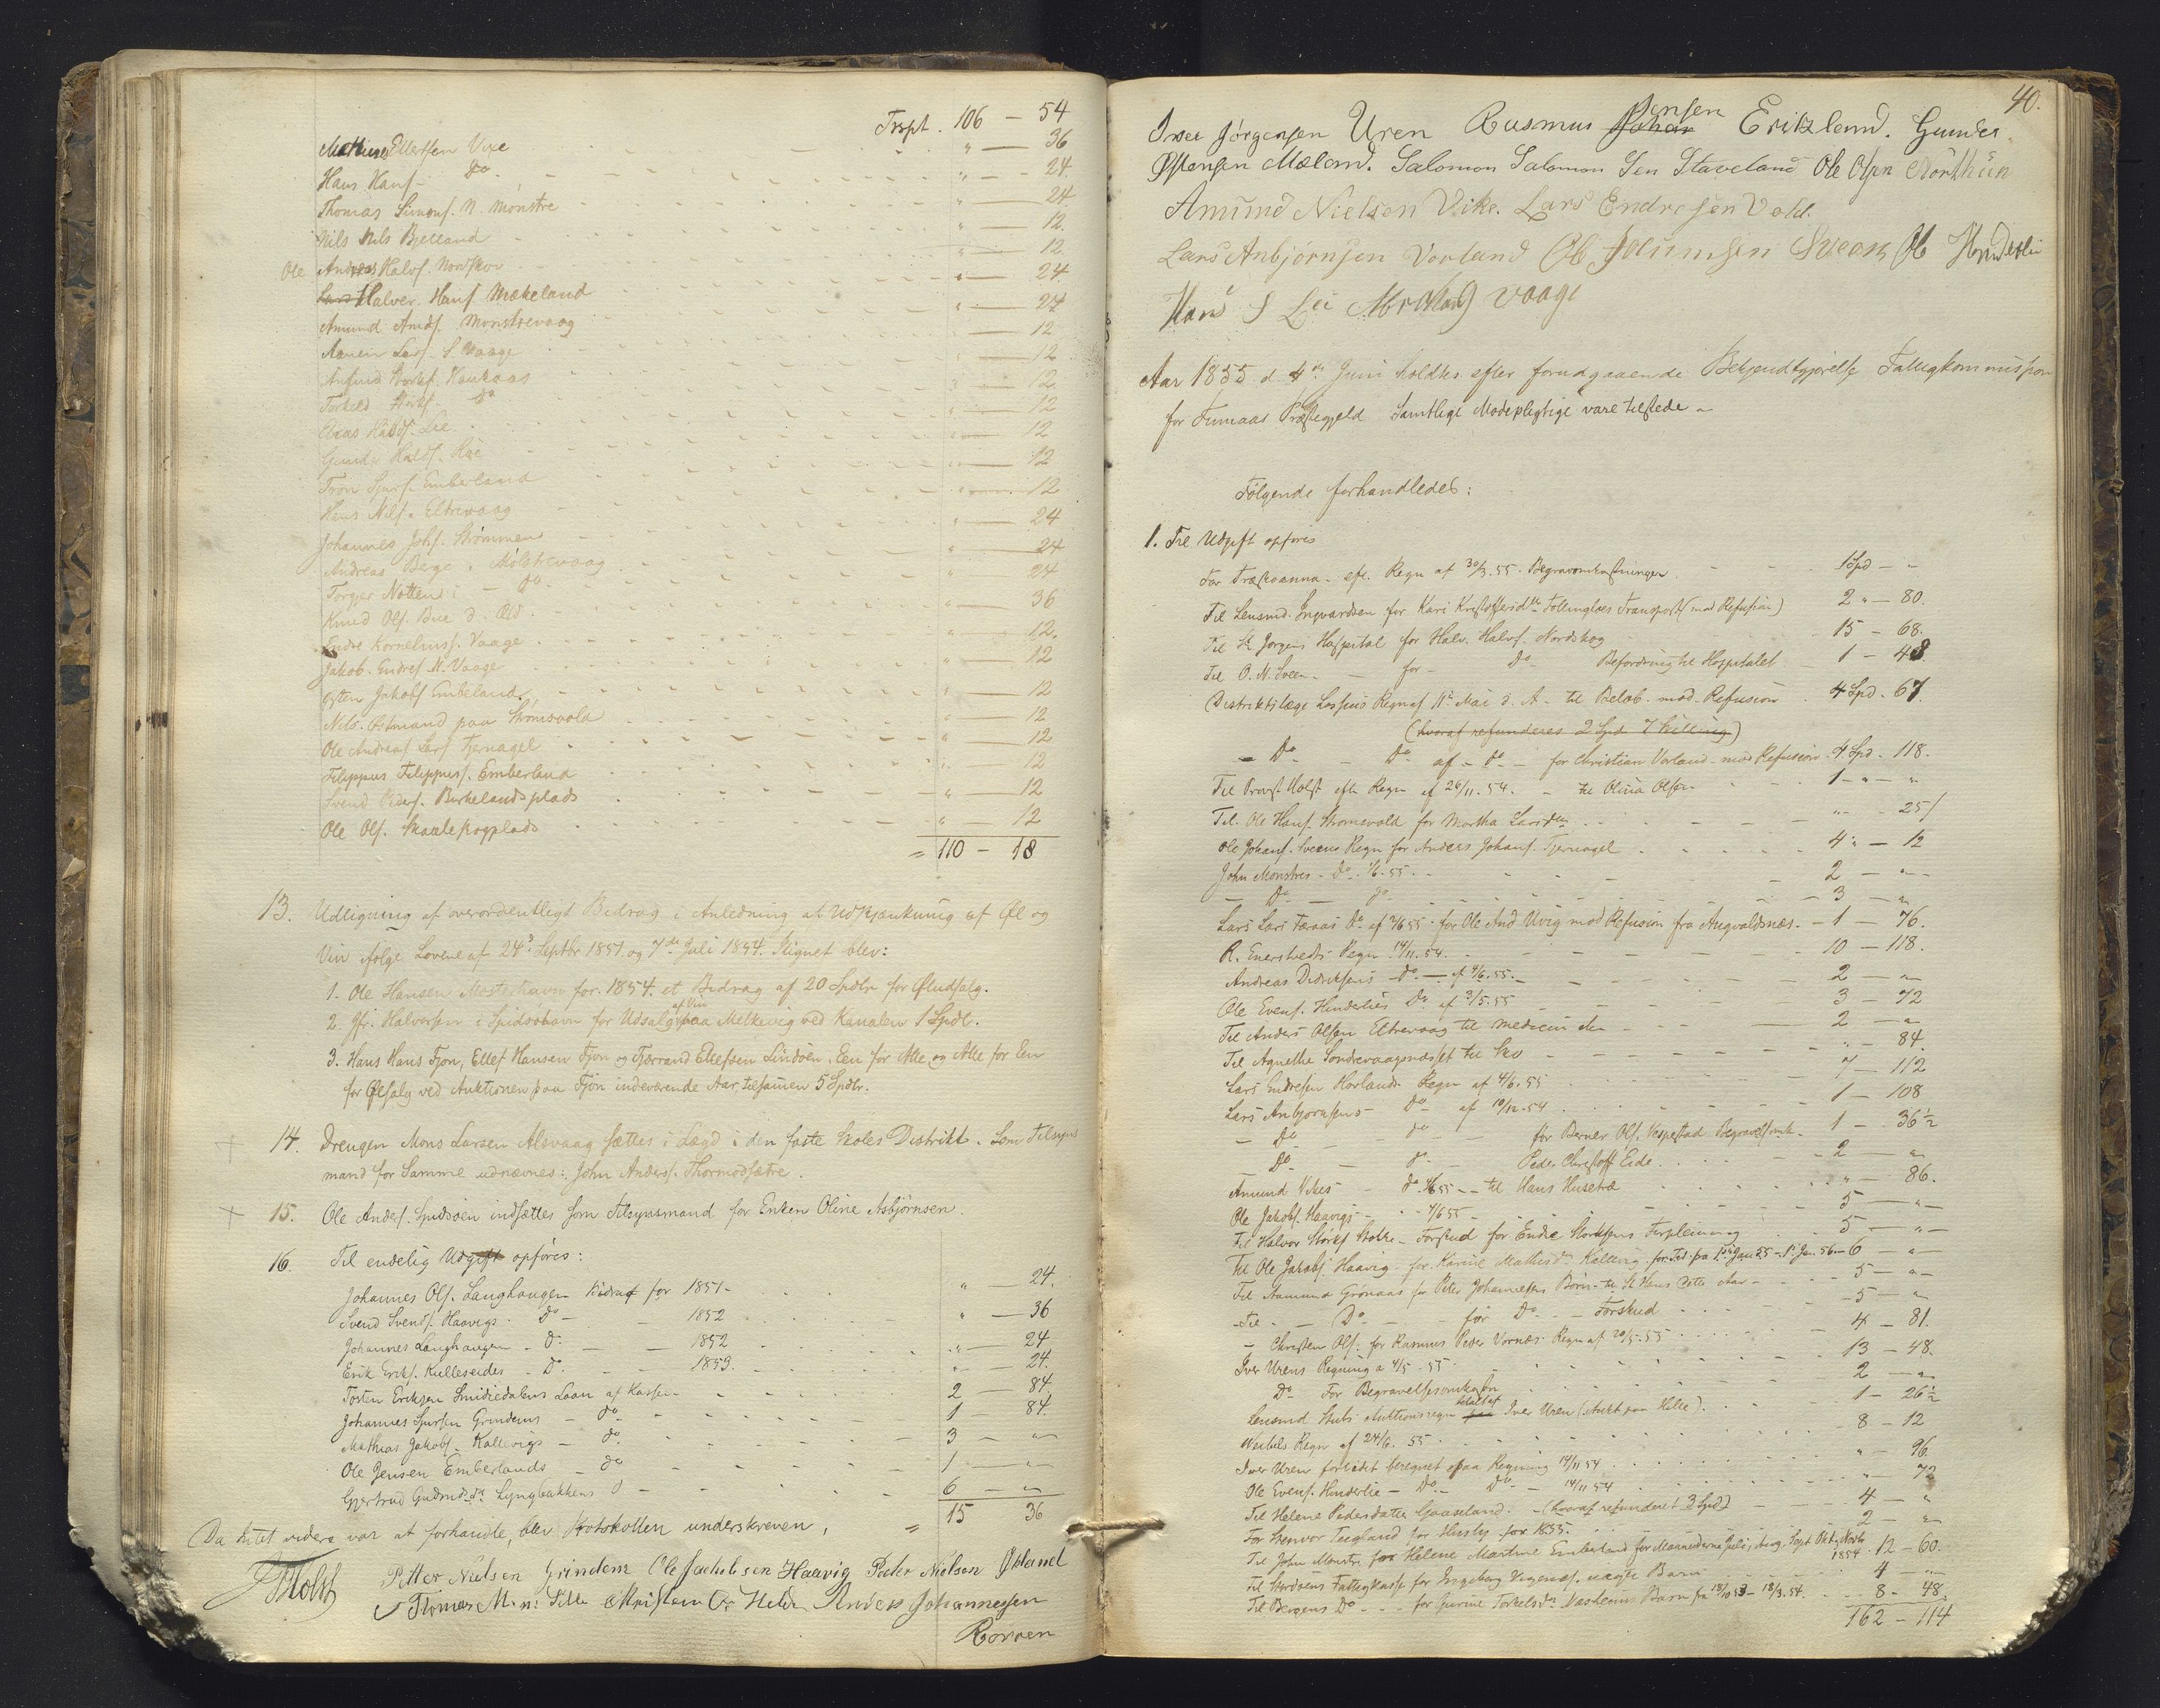 Trspt. 106 — 54
Mathias Ellertsen Vike " — 36
Hans Hans. — Do. " — 24.
Thomas Simons. N. Mønstre " — 24
Nils Nils Bjelland " — 12.
Ole Andreas Halvs. Nordskov " — 12.
Halver Hans. Mækeland " — 24
Amund Amds. Monstrevaag " — 24
Lars. S. Vaage " — 12
Vaukaas " — 12
Torkeld Do " — 12
Lie " — 12
Halds. " — 12
Tron Sjurs. Emberland " — 12
Hans Nils. Eltrevaag " — 12
Johannes Johs. Strømmen " — 24
Andreas Berge i Mølstrevaag " — 24
Torger Notten i — do. " — 24
Knud Ols. Bue d. Old. " — 36
Endre Korneliuss. Vaage " — 12.
Jakob Endres. N. Vaage " — 12
Østen Jakobs Embeland " — 12
Nils Østmand paa Strømsvold " — 12
Ole Andreas Lars Tjernagel " — 12
Filippus Filippuss. Emberland " — 12
Svend Peders. Birkelandsplads " — 12
Ole Ols. plads " — 12
= 110 — 18
13. Udligning af overordentligt Bidrag i Anledning af Udskjænkning af Øl og
Viin ifølge Lovene af 24de Septbr 1851 og 7de Juli 1854. Lignet blev:
1. Ole Hansen Mosterhavn for 1854. et Bidrag af 20 Spdlr for Øludsalg.
2. Gfr. Halversen i Spidsøhavn for Udsalg af Vin paa Melkevig ved Kanalen 1 Spdl.
3. Hans Hans Fjon, Ellef Hansen Fjon og Tjerrand Ellefsen Lindøen, Een for Alle og Alle for Een
for Ølsalg ved Auktionen paa Fjon indeværende Aar, tilsamen 5 Spdlr.
14. Drengen Mons Larsen Alsvaag sættes i Lægd i den faste Skoles Distrikt. Som Tilsyns
mand for Samme udnævnes: John Anders. Thormodsætre.
15. Ole Anders. Spidsøen indsættes som Tilsynsmand for Enken Oline Asbjørnsen.
16. Til endelig Udgift opføres:
Johannes Ols. Langhaugen Bidrag for 1851 " — 24.
Svend Svends. Haavigs Do — 1852 " — 36
Johannes Langhaugen — Do — 1852 " — 24
Erik Eriks. Kulleseides — Do — 1853. " — 24.
Torsten Eriksen Smidiedalens Laan af Kassen 2 — 84
Johannes Sjursen Grindems — Do 1 — 84.
Mathias Jakobs. Kallevigs — Do 3 — "
Ole Jensen Emberlands — do 1 — "
Gjertrud Gudmdsdr Lyngbakkens 6 — "
= 15 36
Da Intet videre var at forhandle, blev Protokollen underskreven,
JHolst Petter Nielsen Grindem Ole Jachobsen Haavig Peder Nielsen Økland
Thomas M. Anders Johannessen
Røvren
40.
Iver Jørgensen Uren Rasmus Jensen Eritzland. Gunder
Østensen Mæland. Salomon Salomon Sen Staveland Ole Olsen Nörthun
Amund Nielsen Vike. Lars Endresen Vold.
Lars Anbjørnsen Vorland Ole Johannsen Sveen Ole Hynderlie
Hans S Lie Vaage
Aar 1855 d. 4de Juni holdtes efter forudgaaende Bekjendtgjørelse Fattigkommission
for Finnaas Præstegjeld. Samtlige Mødepligtige vare tilstede.
Følgende forhandledes:
1. Til Udgift opføres
For eft. Regn af 30/3. 55. Begravomkostninger 1 Spd — "
Til Lensmd. Ingvardsen for Kari Kristoffersdtr Transport (mod Refusion) 2 " — 80.
Til St Jørgens Hospital for Halv. Halvs. Nordskog 15 — 68.
Til O. N. Sveen — for — Do — Befordring til Hospitalet 1 — 48
Distriktslæge Regn af 11te Mai d. A. til Beløb mod Refusion 4 Spd. 67.
(hvoraf refunderes 2 Spd 7 Skilling)
— Do — Do af — Do — for Christian Vorland mod Refusion 4 Spd. 118.
Til Provst Holst efter Regn af 26/11. 54. — til Olina Olsen 1 — " — "
Til Ole Hans. Strømsvold for Martha Larsdtr " — 25
Ole Johans. Sveens Regn for Anders Johans. Tjernagel 4 " — 12
John Monstres — Do. 4/6. 55. 2 — "
— Do — Do 3 — "
Lars Lars Færaas Do af 4/6 55 for Ole And Urvig mod Refusion fra Augvaldsnæs. 1 — 76.
R. Enerstvedts Regn 14/11. 54. 10 — 118.
Andreas Didriksens — Do — af 4/6. 55. 2 — "
Ole Evens. Hinderlies Do af 3/5. 55 3 — 72
Til Anders Olsen Eltrevaag til Medicin 2 — "
Til Agnethe Søndrevaagsnæsset til Sko " — 84.
Lars Endresen Hovlands Regn af 4/6. 55 7 — 112
Lars Anbjørnsens — Do — af 10/12. 54 1 — 108
— Do — do — for Berner Ols. Vespestad Begravelsomk. 1 — 36½
Do — do — Peder Christoff Eide 2 — "
Amund Vikes — do 4/6 55 — til Hans Husetræ " — 86.
Ole Jakobs. Haavigs 4/6 55 5 — "
Til Halvor Størks — Forskud for Endre Størksens Forpleining 5 — "
Til Ole Jakobs. Haavig for Karine Mathisdr Kallevig for Tid fra 1ste Jan 55 – 1ste Jan. 56 6 — "
Til Aamund Grønaas for Peder Johannessens Børn til St Hans dette Aar 5 — "
Til — Do — for Do — Forskud 5 — "
— Christen Ols. for Rasmus Peder Vornæs Regn af 20/5. 55 4 — 81.
Iver Urens Regning a 4/5. 55 13 — 48.
Do — For Begravelsesomkostn 2 — "
Lensmd Auktionsregn betalt af Iver Uren (Aukt. paa Helle) 1 — 26½
Regn af 24/6. 55 8 — 12
Iver Uren forlidet beregnet paa Regning 14/11 54 " — 96
Ole Evens. Hinderlie — Do — Do — 14/11 54 " — 72
Til Helene Pedersdatter Gaasland — (hvoraf refunderet 3 Spd) 4 — "
For Teigland for Husly for 1855. 2 — "
Til John Monstre for Helene Martine Emberland for Maanederne Juli, Aug. Sept Okt. Novbr 1854 12 — 60.
Til Stordøens Fattigkasse for Ingeborg uægte Barn 4 — "
Til Bergens Do — for Gurine Torkelsdr Barn fra 18/10 53 – 18/3. 54. 8 — 48.
162 — 114